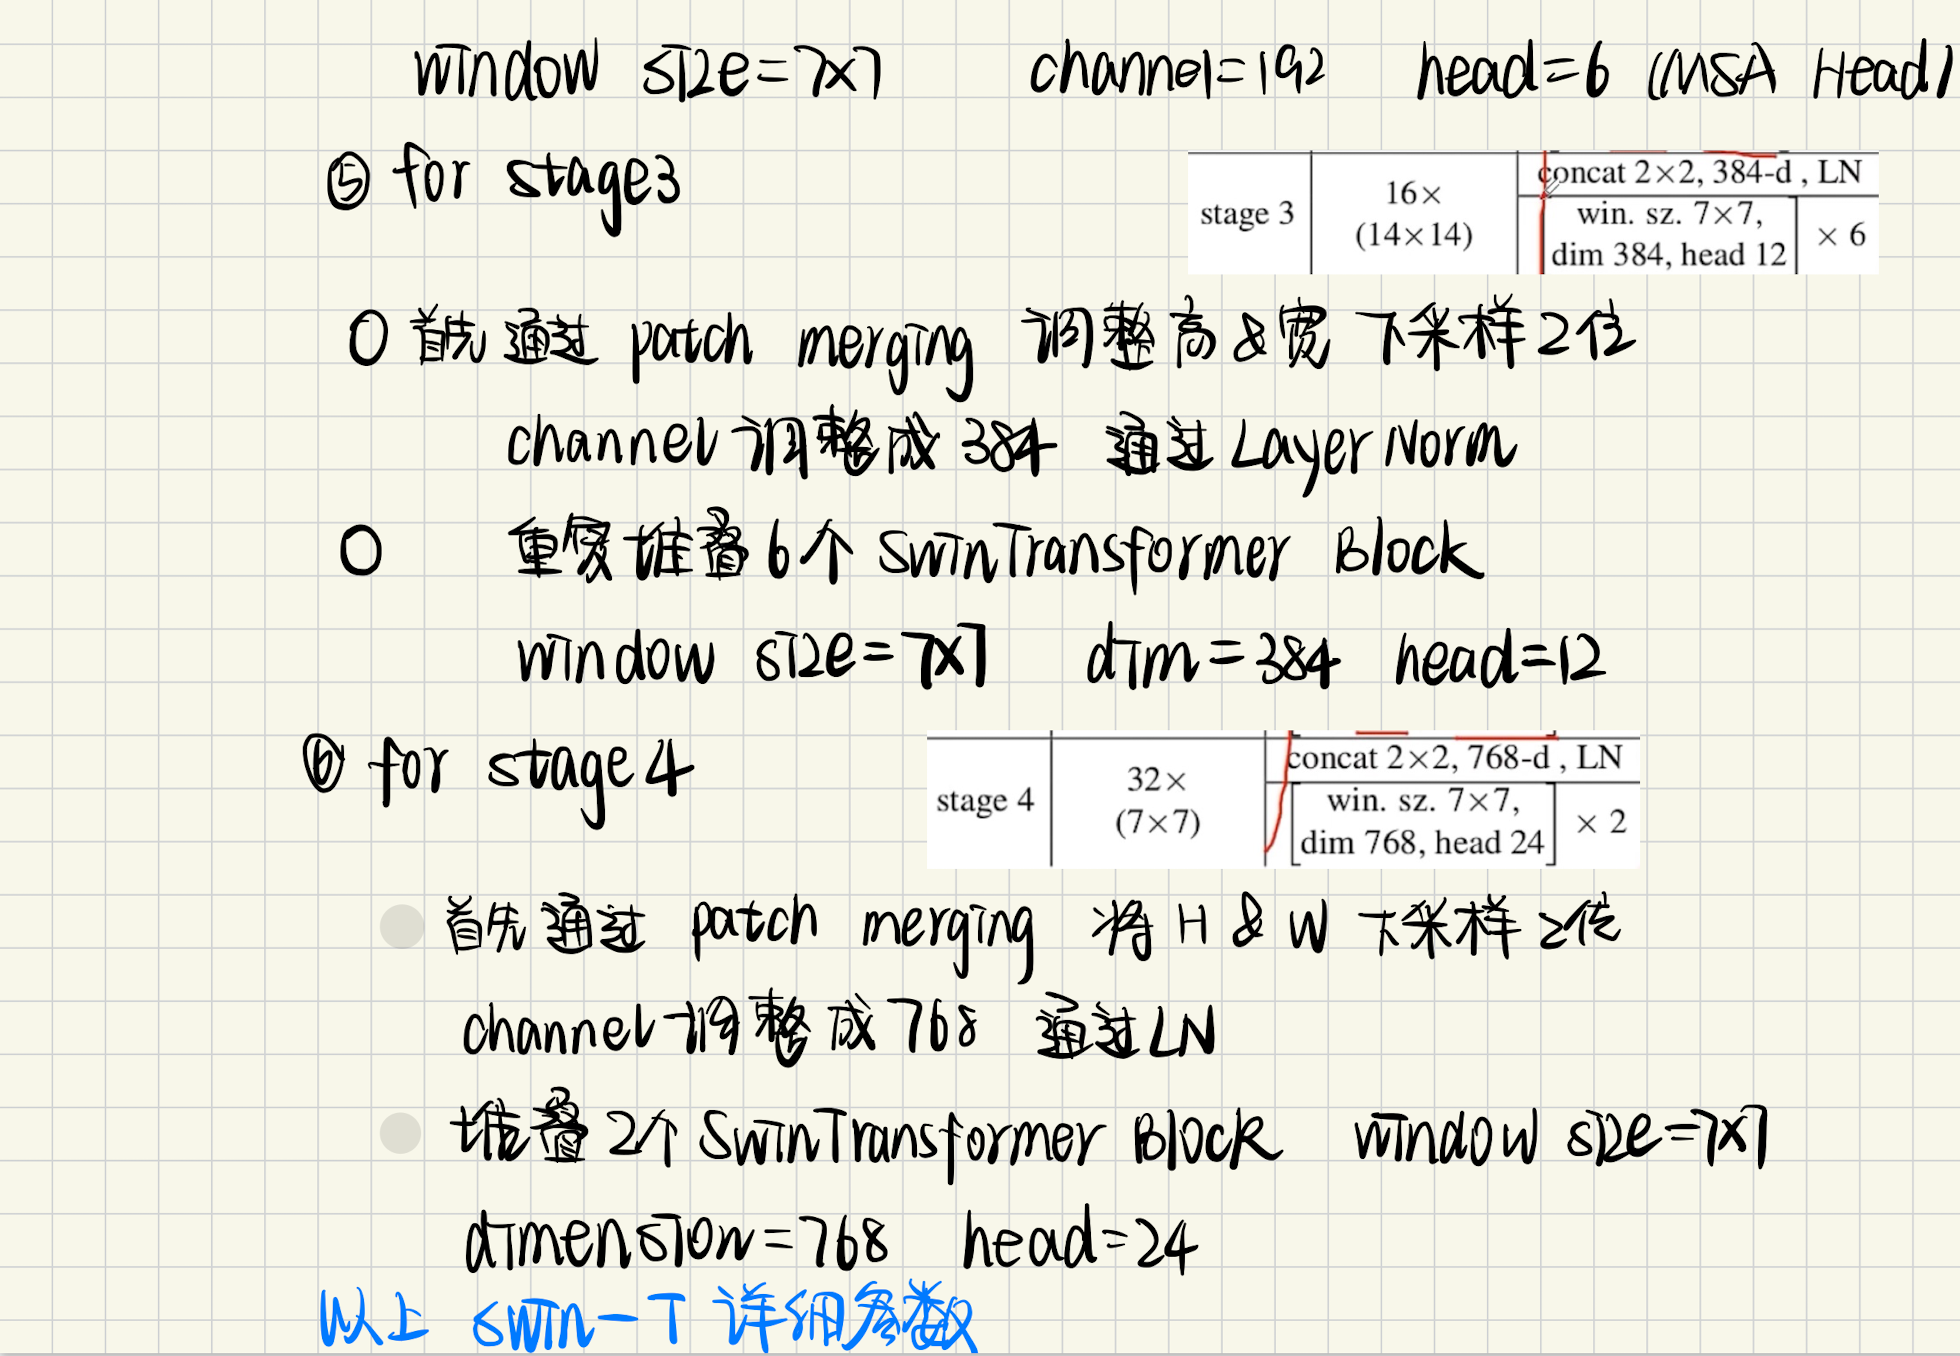 window size=7×7 channel=192 head=6 (MSA Head)
⑤ for stage3
stage 3
16×
(14×14)
concat 2×2, 384-d , LN
win. sz. 7×7,
dim 384, head 12
× 6
首先通过 patch merging 调整高&宽 下采样2倍
channel调整成384 通过LayerNorm
重复堆叠6个 SwinTransformer Block
window size=7×7 dim=384 head=12
⑥ for stage4
stage 4
32×
(7×7)
concat 2×2, 768-d , LN
win. sz. 7×7,
dim 768, head 24
× 2
首先通过 patch merging 将H & W 下采样2倍
channel调整成768 通过LN
堆叠2个SwinTransformer Block window size=7×7
dimension=768 head=24
以上 swin-T 详细参数